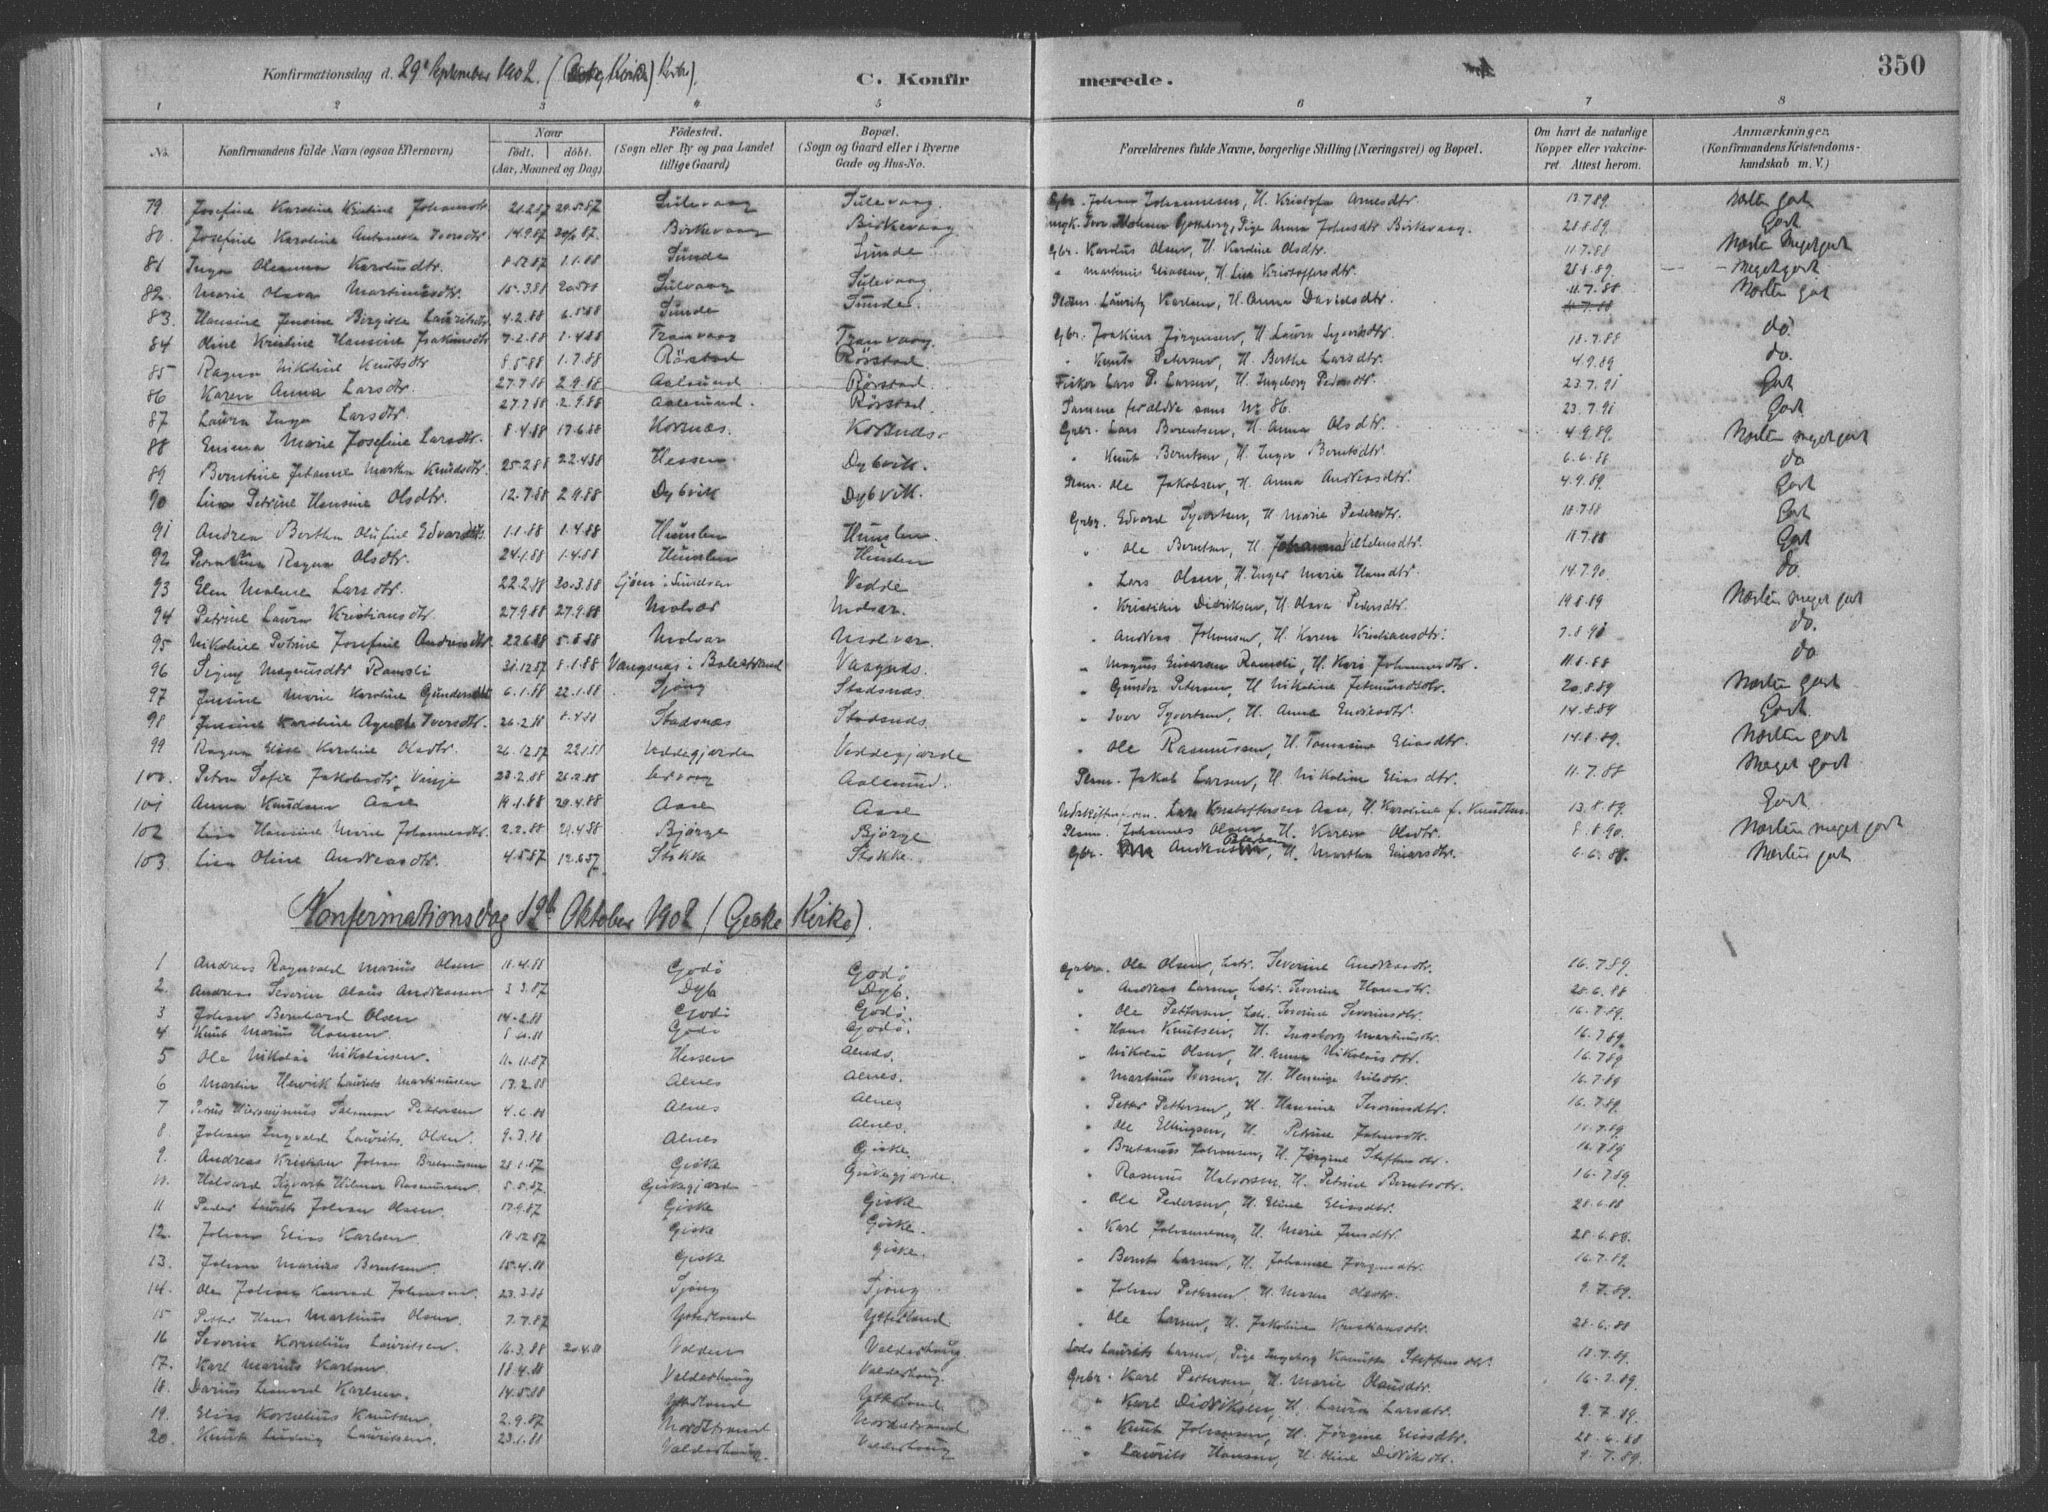 350
Konfirmationsdag d. 29de September 1902. (Borg Kirke)
C. Konfirmerede.
1 2 3 4 5 6 7 8
No. Konfirmandens fulde Navn (ogsaa Efternavn) Naar født. døbt. (Aar, Maaned og Dag) Fødested. (Sogn eller By og paa Landet tillige Gaard) Bopæl. (Sogn og Gaard eller i Byerne Gade og Hus-No. Forældrenes fulde Navne, borgerlige Stilling (Næringsvei) og Bopæl. Om havt de naturlige Kopper eller vakcineret. Attest herom. Anmærkninger. (Konfirmandens Kristendomskundskab m. V.)
79 Josefine Karoline Kristine Johansdtr. 21.2.87 29.5.87 Sulevaag Sulevaag. Gbr. Johan Johannesen, H. Kristofa Arnesdtr. 13.7.89. Næsten godt
80. Josefine Karoline Antonette Iversdtr. 14.9.87 Birkevaag Birkevaag Pige Anna Johansdtr Birkevaag. 28.8.89. Godt
81 Inga Oleanna Karolusdtr. 8.12.87 1.1.88 Sunde Sunde Gbr. Karolus Olsen, H. Karoline Olsdtr. 11.7.88 Næsten Meget godt
82. Marie Olava Martinusdtr. 15.3.88 Sulevaag Sulevaag. " Martinus Eliassen, H. Lisa Kristoffersdtr. 28.8.89. Meget godt
83. Hansine Jensine Birgitte Lauritsdtr. 4.2.88 Sunde Sunde. Lauritz Karlsen, H. Anna Davidsdtr. 11.7.88 Næsten godt
84 Oline Kristine Hansine Joakimsdtr 7.2.88 1.4.88 Tranvaag Tranvaag. Gbr. Joakim Jørgensen, H. Laura Syvertsdtr. 18.7.88 do.
85 Ragna Nikoline Knutsdtr 8.5.88 1.7.88 Rörstad Rörstad. " Knut Petersen, H. Berthe Larsdtr. 4.9.89 do.
86 Karen Anna Larsdtr. 27.7.88 2.9.88 Aalesund Rörstad. Fisker Lars P. Larsen, H. Ingeborg Pedersdtr. 23.7.91 Godt
87 Laura Inga Larsdtr. 27.7.88 2.9.88 Aalesund. Rörstad. Samme forældre som No 86. 23.7.91 Godt
88 Emma Marie Josefine Larsdtr. 8.4.88 17.6.88 Korsnæs. Korsnæs. Gbr. Lars Berentsen, H. Anna Olsdtr. 4.9.89. Næsten meget godt
89 Berntine Johanne Martha Knudsdtr. 25.2.88 22.4.88 Hessen Dybvik. " Knut Berntsen, H. Inger Berntsdtr. 6.6.88 do
90 Lina Petrine Hansine Olsdtr. 12.7.88 2.9.88 Dybvik Dybvik. Ole Jakobsen, H. Anna Andreasdtr. 4.9.89. Godt
91 Andrea Berthe Olufine Edvardsdtr. 1.1.88 1.4.88 Humlen Humlen. Gbr. Edvard Syvertsen, H. Marie Pedersdtr. 18.7.88 Godt
92 Ragna Olsdtr. 24.1.88 1.4.88 Humlen Humlen " Ole Berntsen, H. Johanna Vilhelmsdtr. 11.7.88 Godt
93 Elen Malene Larsdtr. 22.2.88 20.3.88 Vedde " Lars Olsen, H. Inger Marie Hansdtr. 14.7.90 do.
94 Petrine Laura Kristiansdtr. 27.9.88 27.9.88 Molvær Molvær. " Kristian Didriksen, H. Olava Pedersdtr. 19.8.89 Næsten meget godt
95 Nikoline Petrine Josefine Andreasdtr. 22.6.88 5.8.88 Molvær Molvær. " Andreas Johansen, H. Karen Kristiansdtr. 7.8.91 do.
96 Signy Magnusdtr Ramsli 31.12.87 8.1.88 Vangsnæs i Balestrand Vasgnæs. " Magnus Einarsen Ramsli, H. Kari Johannesdtr. 11.8.88 do
97 Jensine Marie Karoline Gundersdtr. 6.1.88 22.1.88 Sjong Stadsnæs. " Gunder Petersen, H. Nikoline Jetmundsdtr. 20.8.89 Næsten godt
98 Jensine Karoline Agnete Iversdtr. 26.2.88 8.4.88 Stadsnæs Stadsnæs. " Iver Syvertsen, H. Anne Endresdtr. 14.8.89 Godt.
99 Ragna Elise Karoline Olsdtr. 26.12.87 22.1.88 Veddegjerde Veddegjærde " Ole Rasmussen, H. Tomasine Eliasdtr. 14.8.89. Næsten godt
100. Petra Sofie Jakobsdtr. Vinje 23.2.88 26.2.88 Aalesund. Jakob Larsen, H. Nikoline Eliasdtr. 11.7.88 Meget godt
101 Anna Knudsen Aase 19.1.88 29.4.88 Aase Aase Lars Kristoffersen Aase, H. Karoline f. Knudsen. 13.8.89. Godt.
102 Lisa Hansine Marie Johannesdtr. 2.2.88 29.4.88 Bjørge Bjørge Johannes Olsen, H. Karen Olsdtr. 8.8.90. Næsten meget godt
103. Lisa Oline Andreasdtr. 4.5.87 12.6.87. Stokke Stokke. Gbr. Andreas Petersen, H. Martha Einarsdtr. 6.6.88. Næsten godt
Konfirmationsdag 12te Oktober 1902 (Giske Kirke).
1 Andreas Ragnvald Marius Olsen 11.4.88 Godö Godö Gbr. Ole Olsen, H. Severine Andreasdtr. 16.7.89.
2. Andreas Severin Olaus Andreasen 3.3.87 Dyb Dyb. " Andreas Larsen, Severine Hansdtr. 28.6.88
3 Johan Bernhard Olsen 14.2.88 Godö Godö. " Ole Pettersen, Severine Severinsdtr. 16.7.89.
4 Knut Marius Hansen. Godö Godö. " Hans Knutsen, H. Ingeborg Martinusdtr. 16.7.89.
5 Ole Nikolai Nikolaisen. 11.11.87 Hessen Alnes. " Nikolai Olsen, H. Anna Nikolaisdtr. 16.7.89
6 Martin Henrik Laurits Martinusen 17.2.88 Alnes Alnes. " Martinus Iversen, H. Henninge Nilsdtr. 16.7.89
7 Petrus Hieronymus Salamon Pettersen 4.6.88 Alnes Alnes " Petter Pettersen, H. Hansine Severinsdtr. 16.7.89.
8. Johan Ingvald Laurits Olsen. 9.3.88 Alnes Alnes. " Ole Ellingsen, H. Petrine Johansdtr. 16.7.89
9. Andreas Kristian Johan Bretanusen 28.1.87 Giske Giske. " Bretanus Johansen, H. Jørgine Steffensdtr. 16.7.89
10. Halvard Syvert Hilmar Rasmussen. 5.5.87. Giskegjærde Giskegjerde. " Rasmus Halvorsen, H. Petrine Berntsdtr. 16.7.89.
11 Peder Laurits Johan Olsen. 17.9.87 Giske Giske " Ole Pedersen, H. Eline Eliasdtr. 28.6.88
12. Johan Elias Karlsen. 10.12.87 Giske Giske. " Karl Johannesen, H. Marie Jensdtr. 28.6.88.
13. Johan Marius Berntsen. 15.4.88 Giske Giske. " Bernt Larsen, H. Johanne Jørgensdtr. 16.7.89.
14. Ole Johan Konrad Johansen. 23.3.88 Sjong Sjong " Johan Pettersen. H. Maren Olsdtr. 9.7.89.
15 Petter Hans Martinus Olsen. 7.7.87 Ytterland Ytterland. " Ole Larsen, H. Jakobine Kristiansdtr. 28.6.88
16 Severin Kornelius Lauritsen. 16.3.88 20.4.88 Valden Valderhoug. Laurits Larsen, Pige Ingeborg Steffensdtr. 18.7.89.
17. Karl Marius Karlsen 18.4.88 Valderhoug Valderhoug. Gbr. Karl Pettersen, H. Marie Olausdtr. 16.7.89.
18. Darius Leonard Karlsen. 14.5.88 Ytterland Ytterland. " Karl Didriksen, H. Laura Larsdtr. 9.7.89.
19. Elias Kornelius Knutsen. 2.9.87 Nordstrand Nordstrand " Knut Johansen, H. Jørgine Eliasdtr. 28.6.88
20. Knut Ludvig Lauritsen. 23.1.88 Valderhoug. Valderhoug " Laurits Hansen, H. Oline Didriksdtr. 9.7.89.